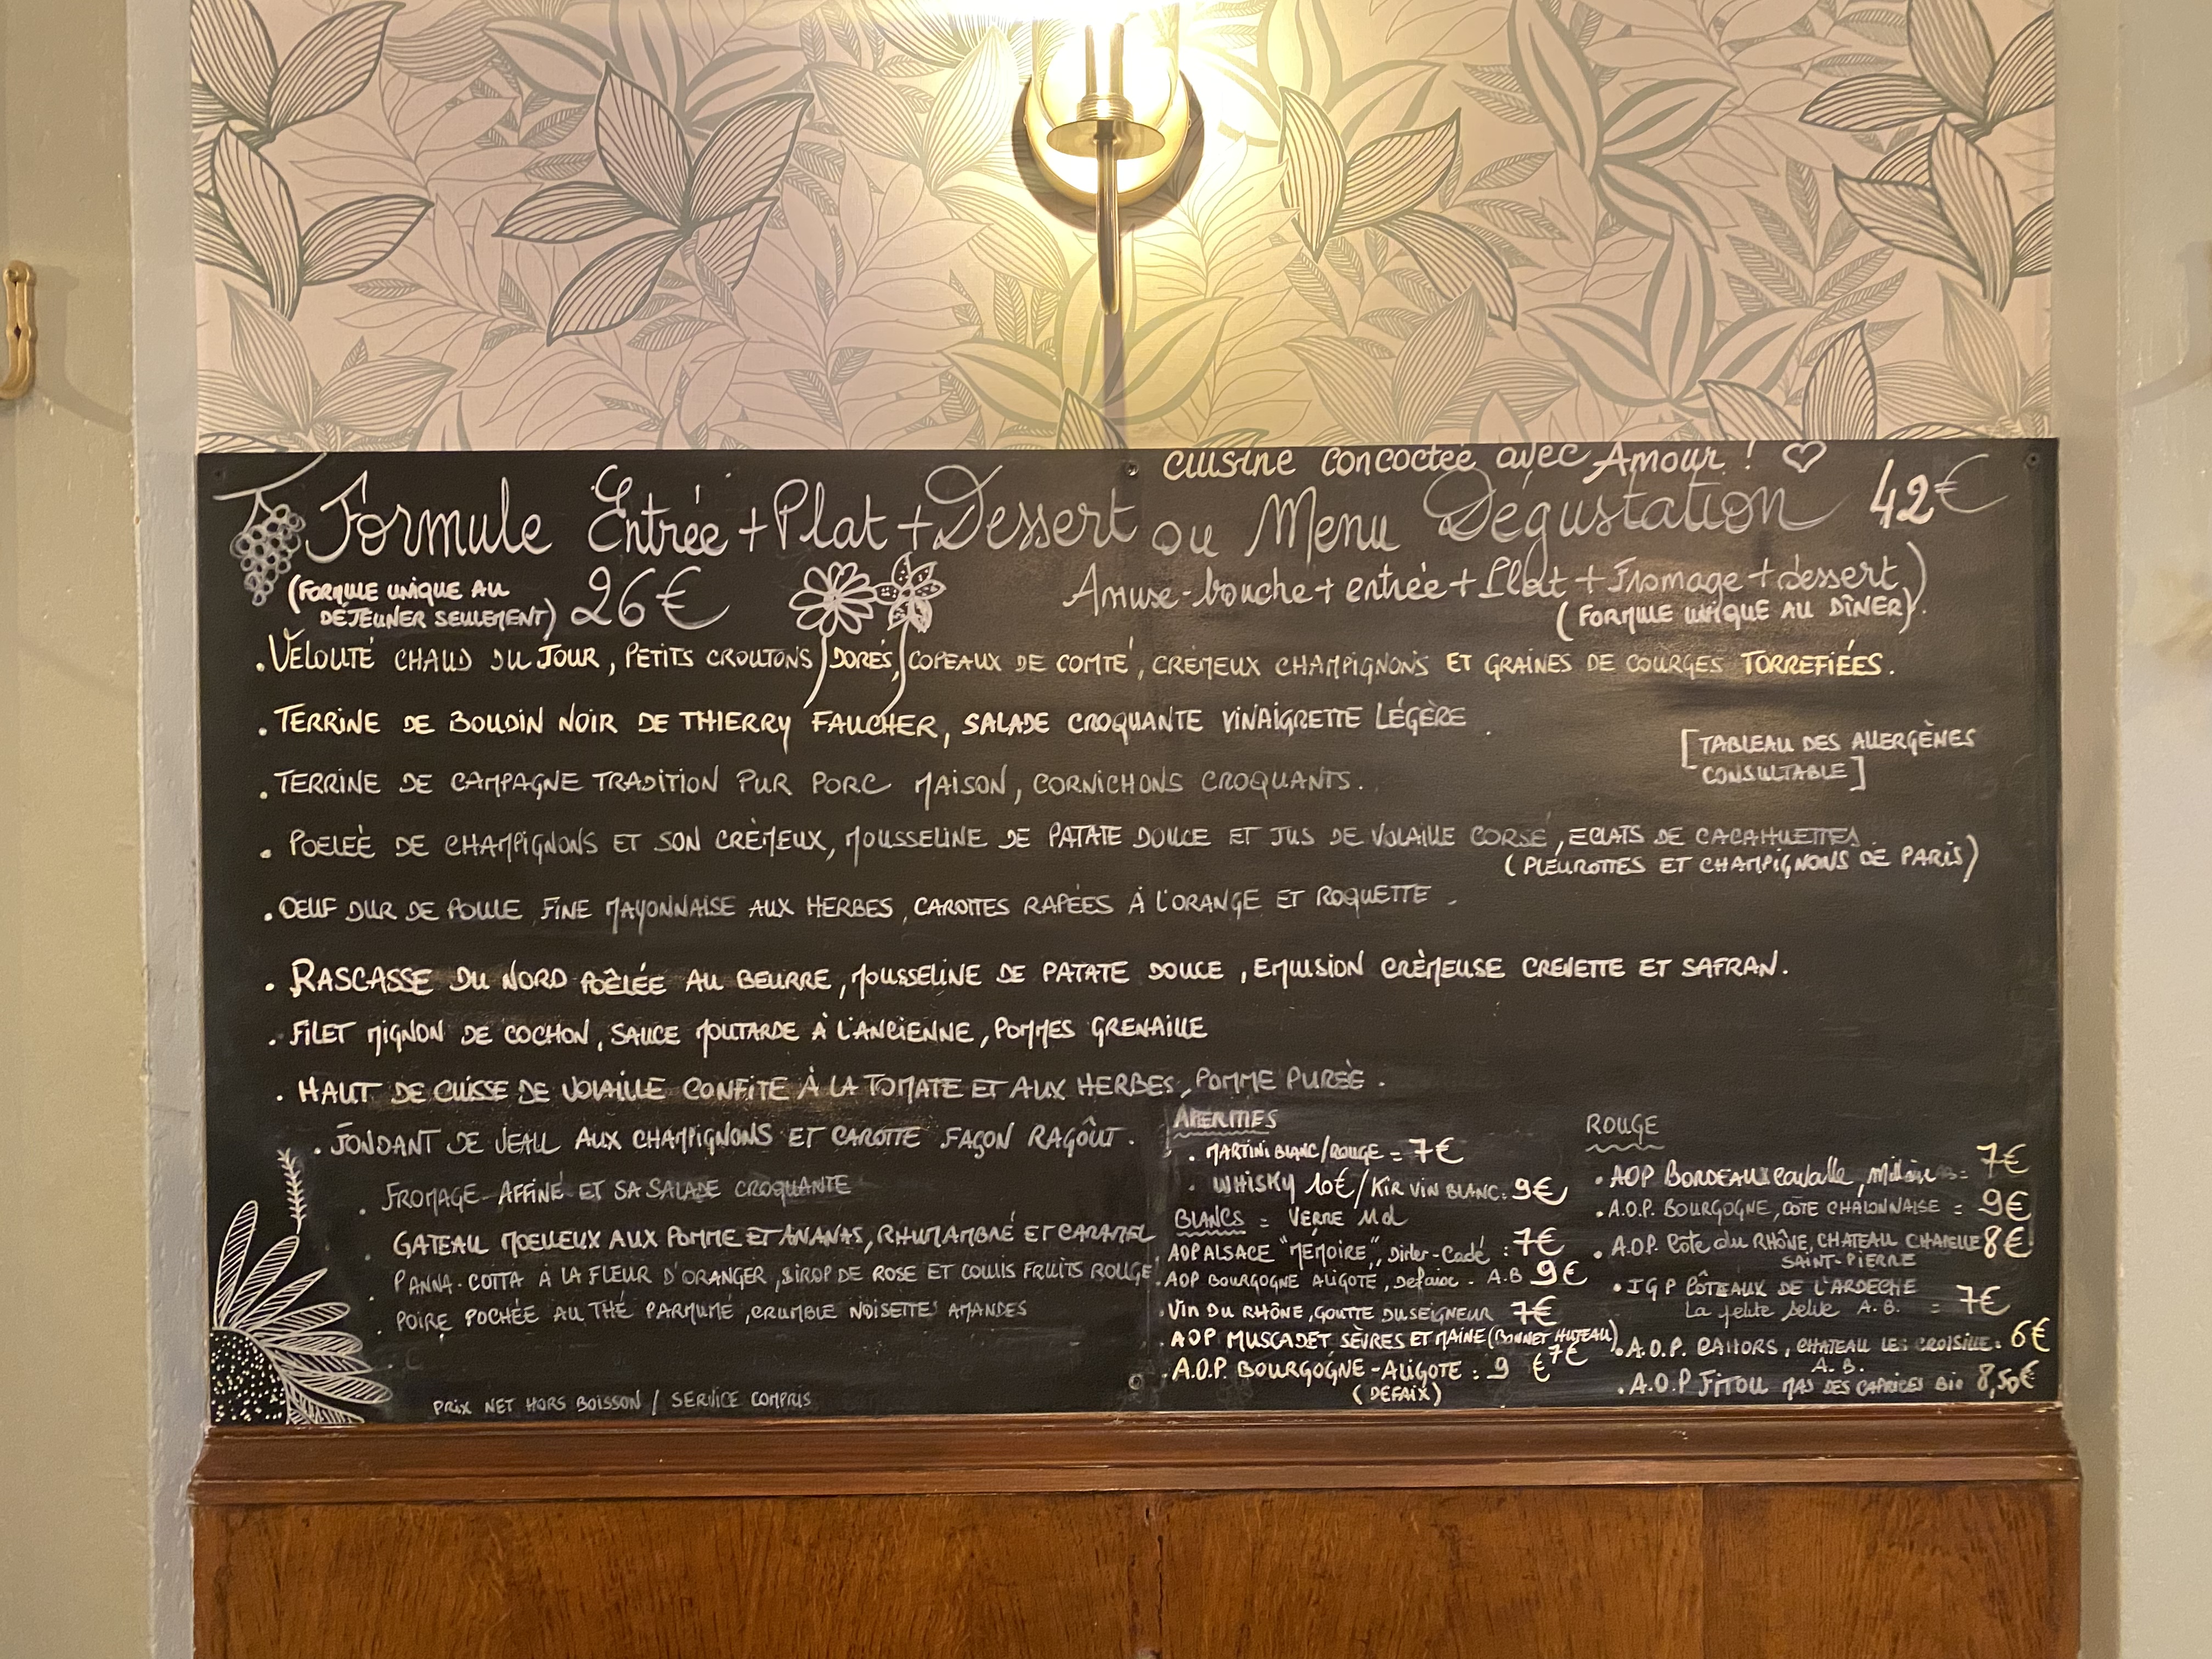 cuisine concoctée avec Amour !
Formule Entrée + Plat + Dessert ou Menu Dégustation 42€
(FORMULE UNIQUE AU
DÉJEUNER SEULEMENT) 26€
Amuse-bouche + entrée + Plat + Fromage + dessert)
(FORMULE UNIQUE AU DÎNER).
. VELOUTÉ CHAUD DU JOUR, PETITS CROUTONS DORÉS, COPEAUX DE COMTÉ, CRÉMEUX CHAMPIGNONS ET GRAINES DE COURGES TORREFIÉES.
. TERRINE DE BOUDIN NOIR DE THIERRY FAUCHER, SALADE CROQUANTE VINAIGRETTE LÉGÈRE .
[TABLEAU DES ALLERGÈNES
CONSULTABLE]
. TERRINE DE CAMPAGNE TRADITION PUR PORC MAISON, CORNICHONS CROQUANTS.
. POELEÈ DE CHAMPIGNONS ET SON CRÈMEUX, MOUSSELINE DE PATATE DOUCE ET JUS DE VOLAILLE CORSÉ, ECLATS DE CACAHUETTES.
(PLEUROTTES ET CHAMPIGNONS DE PARIS)
. OEUF DUR DE POULE FINE MAYONNAISE AUX HERBES, CAROTTES RAPÉES À L'ORANGE ET ROQUETTE .
. RASCASSE DU NORD POÊLÉE AU BEURRE, MOUSSELINE DE PATATE DOUCE, EMULSION CRÈMEUSE CREVETTE ET SAFRAN.
. FILET MIGNON DE COCHON, SAUCE MOUTARDE À L'ANCIENNE, POMMES GRENAILLE
. HAUT DE CUISSE DE VOLAILLE CONFITE À LA TOMATE ET AUX HERBES, POMME PURÉE .
. FONDANT DE VEAU AUX CHAMPIGNONS ET CAROTTE FAÇON RAGOÛT .
. FROMAGE AFFINÉ ET SA SALADE CROQUANTE
. GATEAU MOELLEUX AUX POMME ET ANANAS, RHUM AMBRÉ ET CARAMEL
. PANNA-COTTA À LA FLEUR D'ORANGER, SIROP DE ROSE ET COULIS FRUITS ROUGE
. POIRE POCHÉE AU THÉ PARFUMÉ, CRUMBLE NOISETTES AMANDES
PRIX NET HORS BOISSON / SERVICE COMPRIS
APERITIFS
. MARTINI BLANC/ROUGE = 7€
. WHISKY 10€ / KIR VIN BLANC: 9€
BLANCS = VERRE 14cl
AOP ALSACE "MÉMOIRE", Dirler-Cadé : 7€
. AOP BOURGOGNE ALIGOTÉ, Defaix - A.B 9€
. VIN DU RHÔNE, GOUTTE DU SEIGNEUR 7€
. AOP MUSCADET, SÈVRES ET MAINE (BONNET HUTEAU) 7€
. A.O.P. BOURGOGNE-ALIGOTE : 9 €
(DEFAIX)
ROUGE
. AOP BORDEAUX = 7€
. A.O.P. BOURGOGNE, COTE CHALONNAISE = 9€
. A.O.P. Côte du RHÔNE, CHATEAU CHAPELLE 8€
SAINT-PIERRE
. IGP CÔTEAUX DE L'ARDECHE
La petite Selve A.B. = 7€
. A.O.P. CAHORS, CHATEAU LES CROISILLE: 6€
A.B.
. A.O.P FITOU MAS DES CAPRICES BIO 8,50€